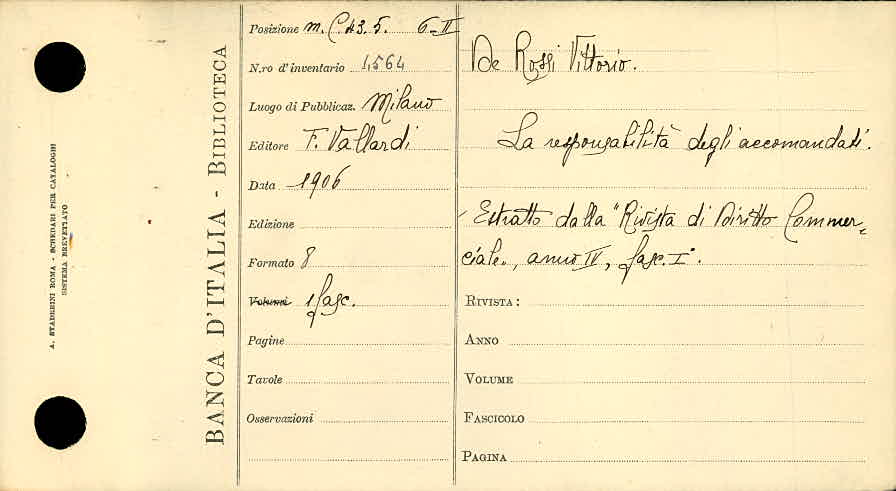 A. STADERINI ROMA - SCHEDARI PER CATALOGHI
SISTEMA BREVETTATO
BANCA D'ITALIA - BIBLIOTECA
Posizione m. C. 43. 5. 6-II
N.ro d'inventario 1,564
Luogo di Pubblicaz. Milano
Editore F. Vallardi
Data 1906
Edizione
Formato 8
Volumi 1 fasc.
Pagine
Tavole
Osservazioni
De Rossi Vittorio.
La responsabilità degli accomandati.
Estratto dalla "Rivista di Diritto Commer-
ciale", anno IV, fasc. I°.
RIVISTA:
ANNO
VOLUME
FASCICOLO
PAGINA